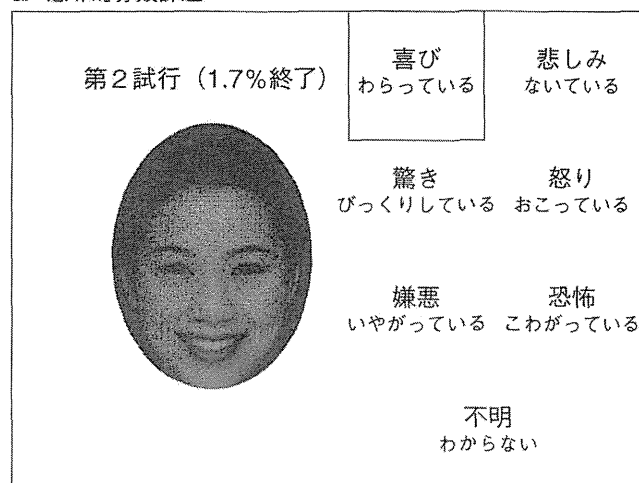 第2試行（1.7%終了）
喜び
わらっている
悲しみ
ないている
驚き
びっくりしている
怒り
おこっている
嫌悪
いやがっている
恐怖
こわがっている
不明
わからない